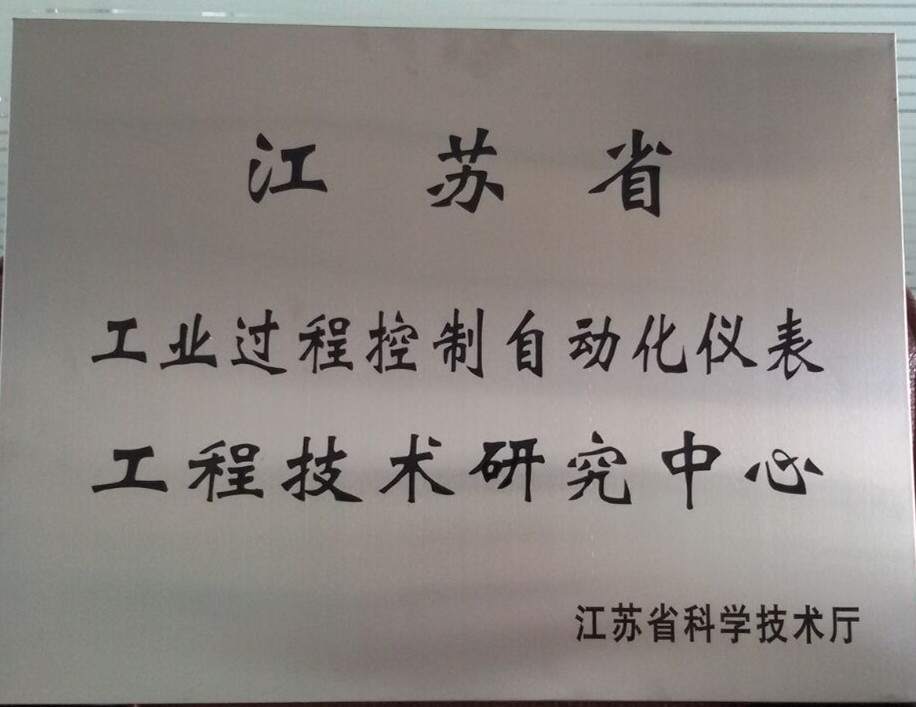 江苏省
工业过程控制自动化仪表
工程技术研究中心
江苏省科学技术厅